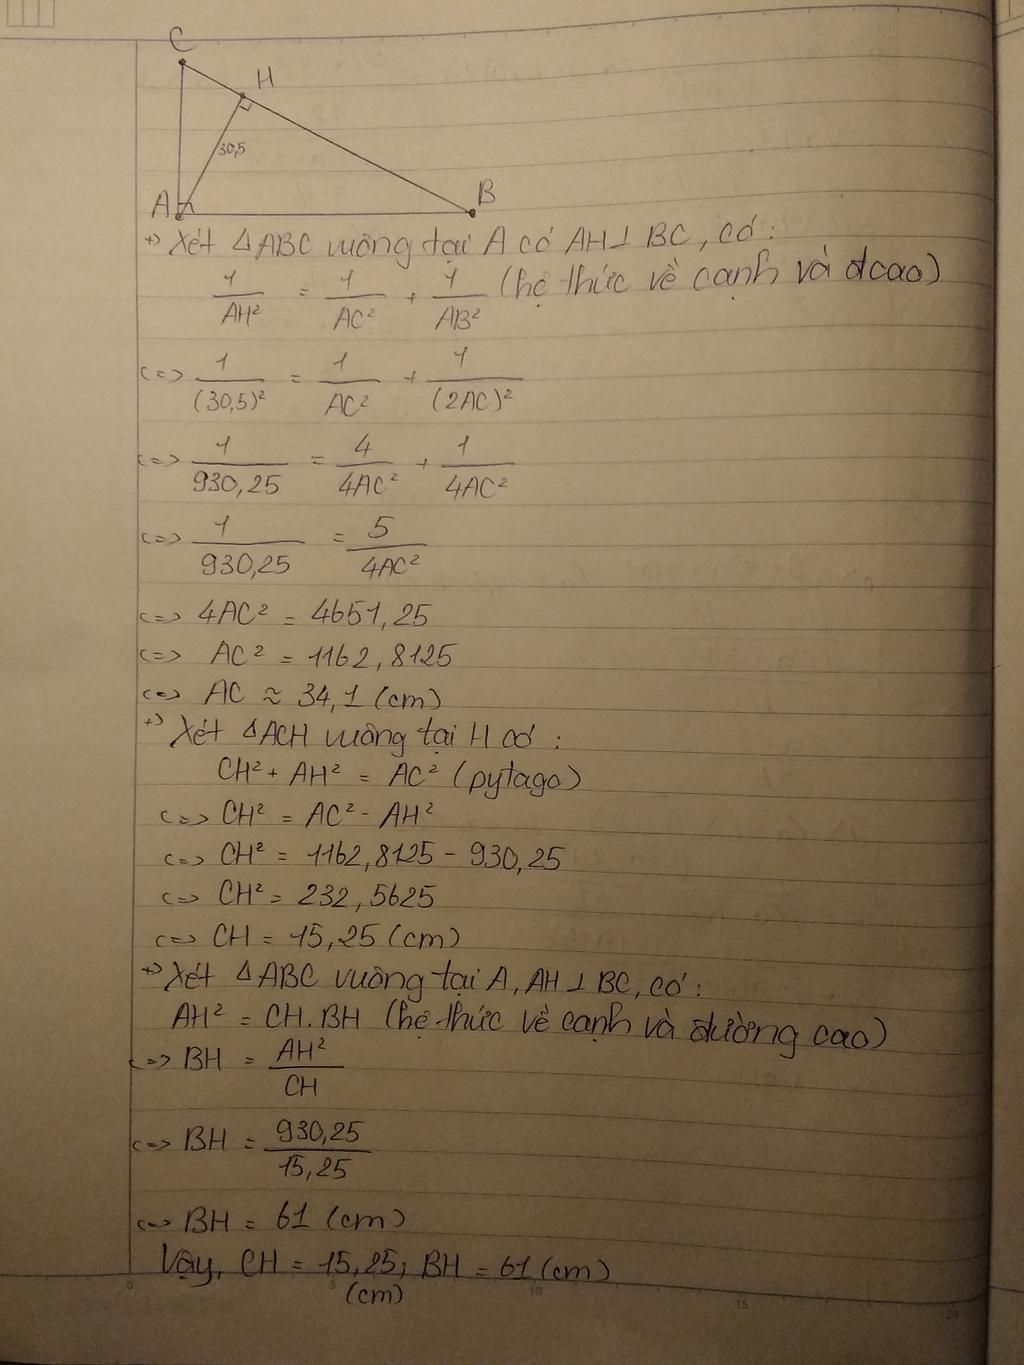 C
H
30,5
A
B
+) Xét ΔABC vuông tại A có AH⊥BC, có:
1/AH² = 1/AC² + 1/AB² (hệ thức về cạnh và đcao)
<=> 1/(30,5)² = 1/AC² + 1/(2AC)²
<=> 1/930,25 = 4/4AC² + 1/4AC²
<=> 1/930,25 = 5/4AC²
<=> 4AC² = 4651,25
<=> AC² = 1162,8125
<=> AC ≈ 34,1 (cm)
+) Xét ΔACH vuông tại H có:
CH² + AH² = AC² (pytago)
<=> CH² = AC² - AH²
<=> CH² = 1162,8125 - 930,25
<=> CH² = 232,5625
<=> CH = 15,25 (cm)
+) Xét ΔABC vuông tại A, AH⊥BC, có:
AH² = CH.BH (hệ thức về cạnh và đường cao)
<=> BH = AH²/CH
<=> BH = 930,25/15,25
<=> BH = 61 (cm)
Vậy, CH = 15,25; BH = 61 (cm)
(cm)
0 5 10 15 20